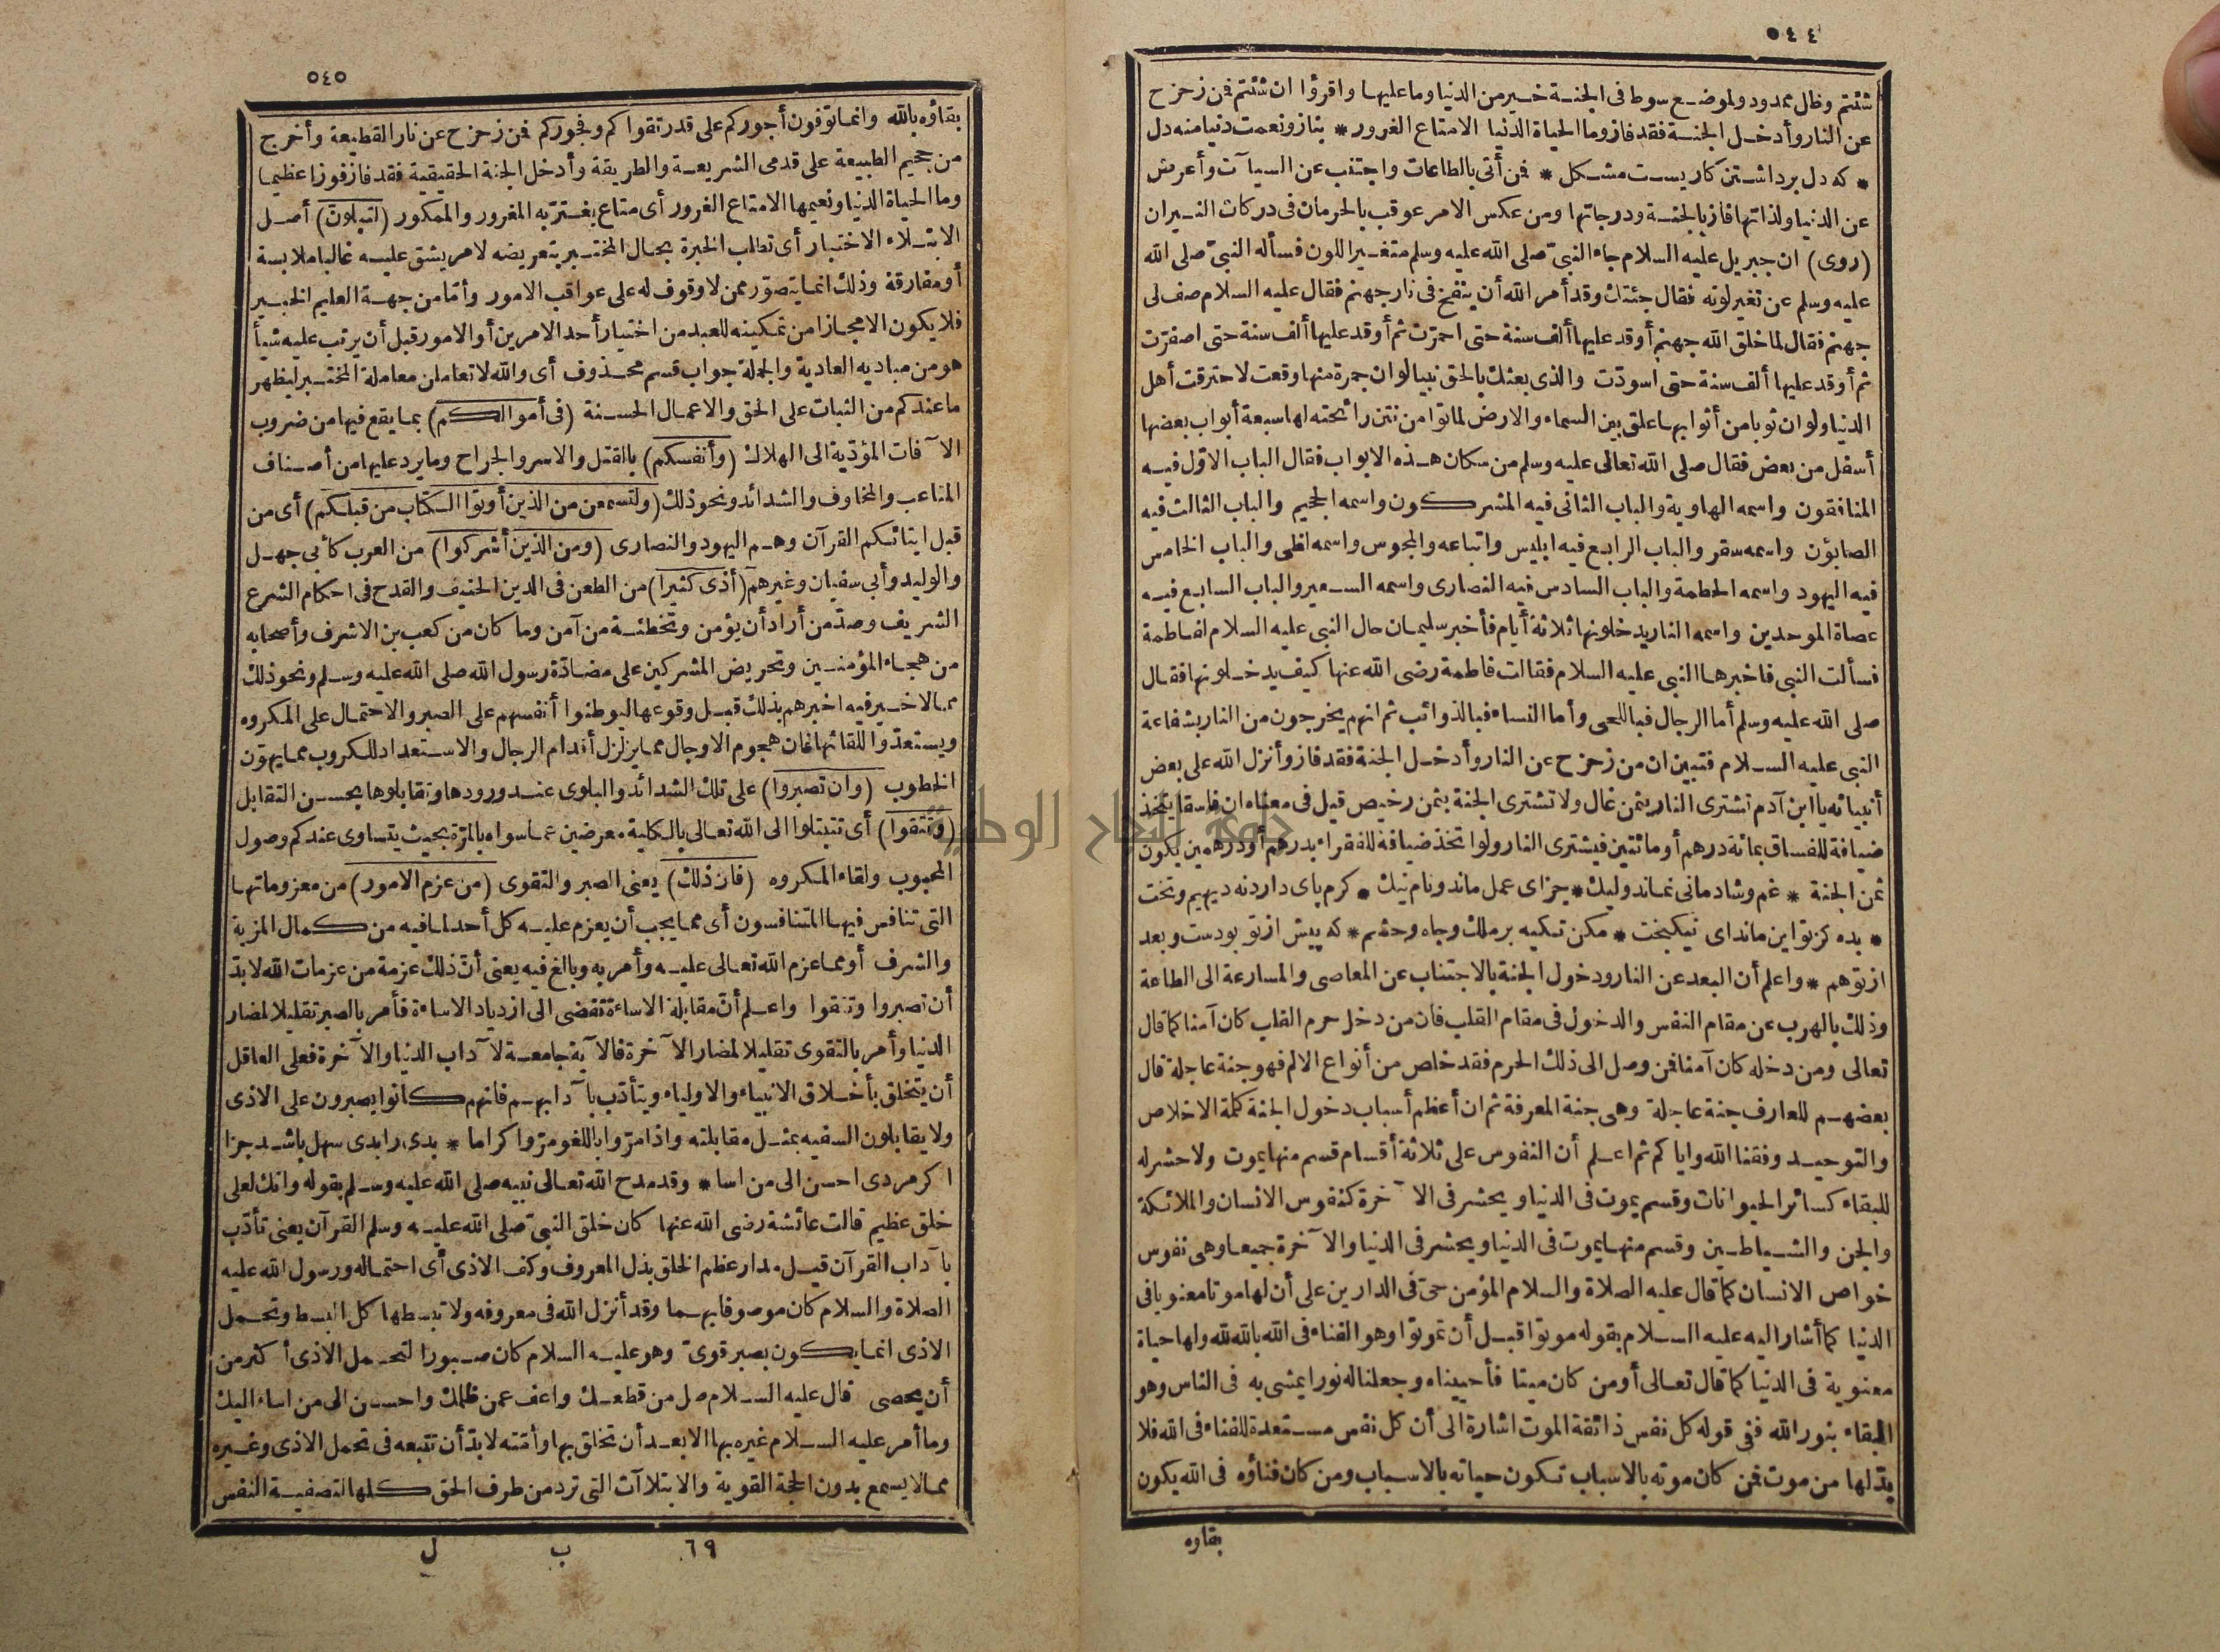 ٥٤٤
شئتم وظل ممدود ولموضع سوط فى الجنة خير من الدنيا وما عليها واقرؤا ان شئتم فمن زحزح
عن النار وأدخل الجنة فقد فاز وما الحياة الدنيا الا متاع الغرور * بناز ونعمت دنيا منه دل
* كه دل برداشتن كاريست مشكل * فمن أتى بالطاعات واجتنب عن السيآت وأعرض
عن الدنيا ولذاتها فاز بالجنة ودرجاتها ومن عكس الامر عوقب بالحرمان فى دركات النيران
(روى) ان جبريل عليه السلام جاء النبىّ صلى الله عليه وسلم متغير اللون فسأله النبىّ صلى الله
عليه وسلم عن تغير لونه فقال جئتك وقد أمر الله أن ينفخ فى نار جهنم فقال عليه السلام صف لى
جهنم فقال لما خلق الله جهنم أوقد عليها ألف سنة حتى احمرّت ثم أوقد عليها ألف سنة حتى اصفرّت
ثم أوقد عليها ألف سنة حتى اسودّت والذى بعثك بالحق نبيا لو ان جمرة منها وقعت لاحترقت أهل
الدنيا ولو ان ثوبا من أثوابها علق بين السماء والارض لماتوا من نتن رائحته لها سبعة أبواب بعضها
أسفل من بعض فقال صلى الله تعالى عليه وسلم من سكان هذه الابواب فقال الباب الاوّل فيه
المنافقون واسمه الهاوية والباب الثانى فيه المشركون واسمه الجحيم والباب الثالث فيه
الصابؤن واسمه سقر والباب الرابع فيه ابليس واتباعه والمجوس واسمه لظى والباب الخامس
فيه اليهود واسمه الحطمة والباب السادس فيه النصارى واسمه السعير والباب السابع فيه
عصاة الموحدين واسمه النار يدخلونها ثلاثة أيام فأخبر سليمان حال النبى عليه السلام لفاطمة
فسألت النبى فاخبرها النبى عليه السلام فقالت فاطمة رضى الله عنها كيف يدخلونها فقال
صلى الله عليه وسلم أما الرجال فباللحى وأما النساء فبالذوائب ثم انهم يخرجون من النار بشفاعة
النبى عليه السلام فتبين ان من زحزح عن النار وأدخل الجنة فقد فاز وأنزل الله على بعض
أنبيائه يا ابن آدم تشترى النار بثمن غال ولا تشترى الجنة بثمن رخيص قيل فى معناه ان فاسقا يتخذ
ضيافة للفساق بمائة درهم أو مائتين فيشترى النار ولو اتخذ ضيافة للفقراء بدرهم أو درهمين يكون
ثمن الجنة * غم وشادمانى نماند وليك * جزاى عمل ماند ونام نيك * كرم پاى دارد نه ديهيم وتخت
* بده كز تو اين ماند اى نيكبخت * مكن تكيه بر ملك وجاه وحشم * كه پيش از تو بودست وبعد
از تو هم * واعلم أن البعد عن النار ودخول الجنة بالاجتناب عن المعاصى والمسارعة الى الطاعة
وذلك بالهرب عن مقام النفس والدخول فى مقام القلب فان من دخل حرم القلب كان آمنا كما قال
تعالى ومن دخله كان آمنا فمن وصل الى ذلك الحرم فقد خلص من أنواع الالم فهو جنة عاجلة قال
بعضهم للعارف جنة عاجلة وهى جنة المعرفة ثم ان أعظم أسباب دخول الجنة كلمة الاخلاص
والتوحيد وفقنا الله واياكم ثم اعلم أن النفوس على ثلاثة أقسام قسم منها يموت ولا حشر له
للبقاء كسائر الحيوانات وقسم يموت فى الدنيا ويحشر فى الآخرة كنفوس الانسان والملائكة
والجن والشياطين وقسم منها يموت فى الدنيا ويحشر فى الدنيا والآخرة جميعا وهى نفوس
خواص الانسان كما قال عليه الصلاة والسلام المؤمن حىّ فى الدارين على أن لها موتا معنويا فى
الدنيا كما أشار اليه عليه السلام بقوله موتوا قبل أن تموتوا وهو الفناء فى الله بالله لله ولها حياة
معنوية فى الدنيا كما قال تعالى أومن كان ميتا فأحييناه وجعلنا له نورا يمشى به فى الناس وهو
البقاء بنور الله ففى قوله كل نفس ذائقة الموت اشارة الى أن كل نفس مستعدة للفناء فى الله فلا
بدّ لها من موت فمن كان موته بالاسباب تكون حياته بالاسباب ومن كان فناؤه فى الله يكون
بقاوه
٥٤٥
بقاؤه بالله وانما توفون أجوركم على قدر تقواكم وفجوركم فمن زحزح عن نار القطيعة وأخرج
من جحيم الطبيعة على قدمى الشريعة والطريقة وأدخل الجنة الحقيقية فقد فاز فوزا عظيما
وما الحياة الدنيا ونعيمها الا متاع الغرور أى متاع يغترّ به المغرور والممكور (لتبلونّ) أصل
الابتلاء الاختبار أى تطلب الخبرة بحال المختبر بتعريضه لامر يشق عليه غالبا ملابسة
أو مفارقة وذلك انما يتصوّر ممن لا وقوف له على عواقب الامور وأمّا من جهة العليم الخبير
فلا يكون الا مجازا من تمكينه للعبد من اختيار أحد الامرين أو الامور قبل أن يرتب عليه شيأ
هو من مباديه العادية والجملة جواب قسم محذوف أى والله لا تعاملن معاملة المختبر ليظهر
ما عندكم من الثبات على الحق والاعمال الحسنة (فى أموالكم) بما يقع فيها من ضروب
الآفات المؤدّية الى الهلاك (وأنفسكم) بالقتل والاسر والجراح وما يرد عليها من أصناف
المتاعب والمخاوف والشدائد ونحو ذلك (ولتسمعن من الذين أوتوا الكتاب من قبلكم) أى من
قبل ايتائكم القرآن وهم اليهود والنصارى (ومن الذين أشركوا) من العرب كأبى جهل
والوليد وأبى سفيان وغيرهم (أذى كثيرا) من الطعن فى الدين الحنيف والقدح فى احكام الشرع
الشريف وصدّ من أراد أن يؤمن وتخطئة من آمن وما كان من كعب بن الاشرف وأصحابه
من هجاء المؤمنين وتحريض المشركين على مضادّة رسول الله صلى الله عليه وسلم ونحو ذلك
مما لا خير فيه اخبرهم بذلك قبل وقوعها ليوطنوا أنفسهم على الصبر والاحتمال على المكروه
ويستعدّوا للقائها فان هجوم الاوجال مما يزلزل أقدام الرجال والاستعداد للكروب مما يهوّن
الخطوب (وان تصبروا) على تلك الشدائد والبلوى عند ورودها وتقابلوها بحسن التقابل
(وتتقوا) أى تتبتلوا الى الله تعالى بالكلية معرضين عما سواه بالمرّة بحيث يتساوى عندكم وصول
المحبوب ولقاء المكروه (فان ذلك) يعنى الصبر والتقوى (من عزم الامور) من معزوماتها
التى تنافس فيها المتنافسون أى مما يجب أن يعزم عليه كل أحد لما فيه من كمال المزية
والشرف أو مما عزم الله تعالى عليه وأمر به وبالغ فيه يعنى أنّ ذلك عزمة من عزمات الله لا بدّ
أن تصبروا وتتقوا واعلم أنّ مقابلة الاساءة تفضى الى ازدياد الاساءة فأمر بالصبر تقليلا لمضار
الدنيا وأمر بالتقوى تقليلا لمضار الآخرة فالآية جامعة لآداب الدنيا والآخرة فعلى العاقل
أن يتخلق بأخلاق الانبياء والاولياء ويتأدّب بآدابهم فانهم كانوا يصبرون على الاذى
ولا يقابلون السفيه بمثل مقابلته واذا مرّوا باللغو مرّوا كراما * بدى را بدى سهل باشد جزا
اكر مردى احسن الى من اسا * وقد مدح الله تعالى نبيه صلى الله عليه وسلم بقوله وانك لعلى
خلق عظيم قالت عائشة رضى الله عنها كان خلق النبىّ صلى الله عليه وسلم القرآن يعنى تأدّب
بآداب القرآن قيل مدار عظم الخلق بذل المعروف وكف الاذى أى احتماله ورسول الله عليه
الصلاة والسلام كان موصوفا بهما وقد أنزل الله فى معروفه ولا تبسطها كل البسط وتحمل
الاذى انما يكون بصبر قوىّ وهو عليه السلام كان صبورا لتحمل الاذى أكثر من
أن يحصى قال عليه السلام صل من قطعك واعف عمن ظلمك واحسن الى من اساء اليك
وما أمر عليه السلام غيره بها الا بعد أن تخلق بها وأمّته لا بدّ أن تتبعه فى تحمل الاذى وغيره
مما لا يسمع بدون الحجة القوية والابتلاآت التى ترد من طرف الحق كلها لتصفية النفس
٦٩ ب ل